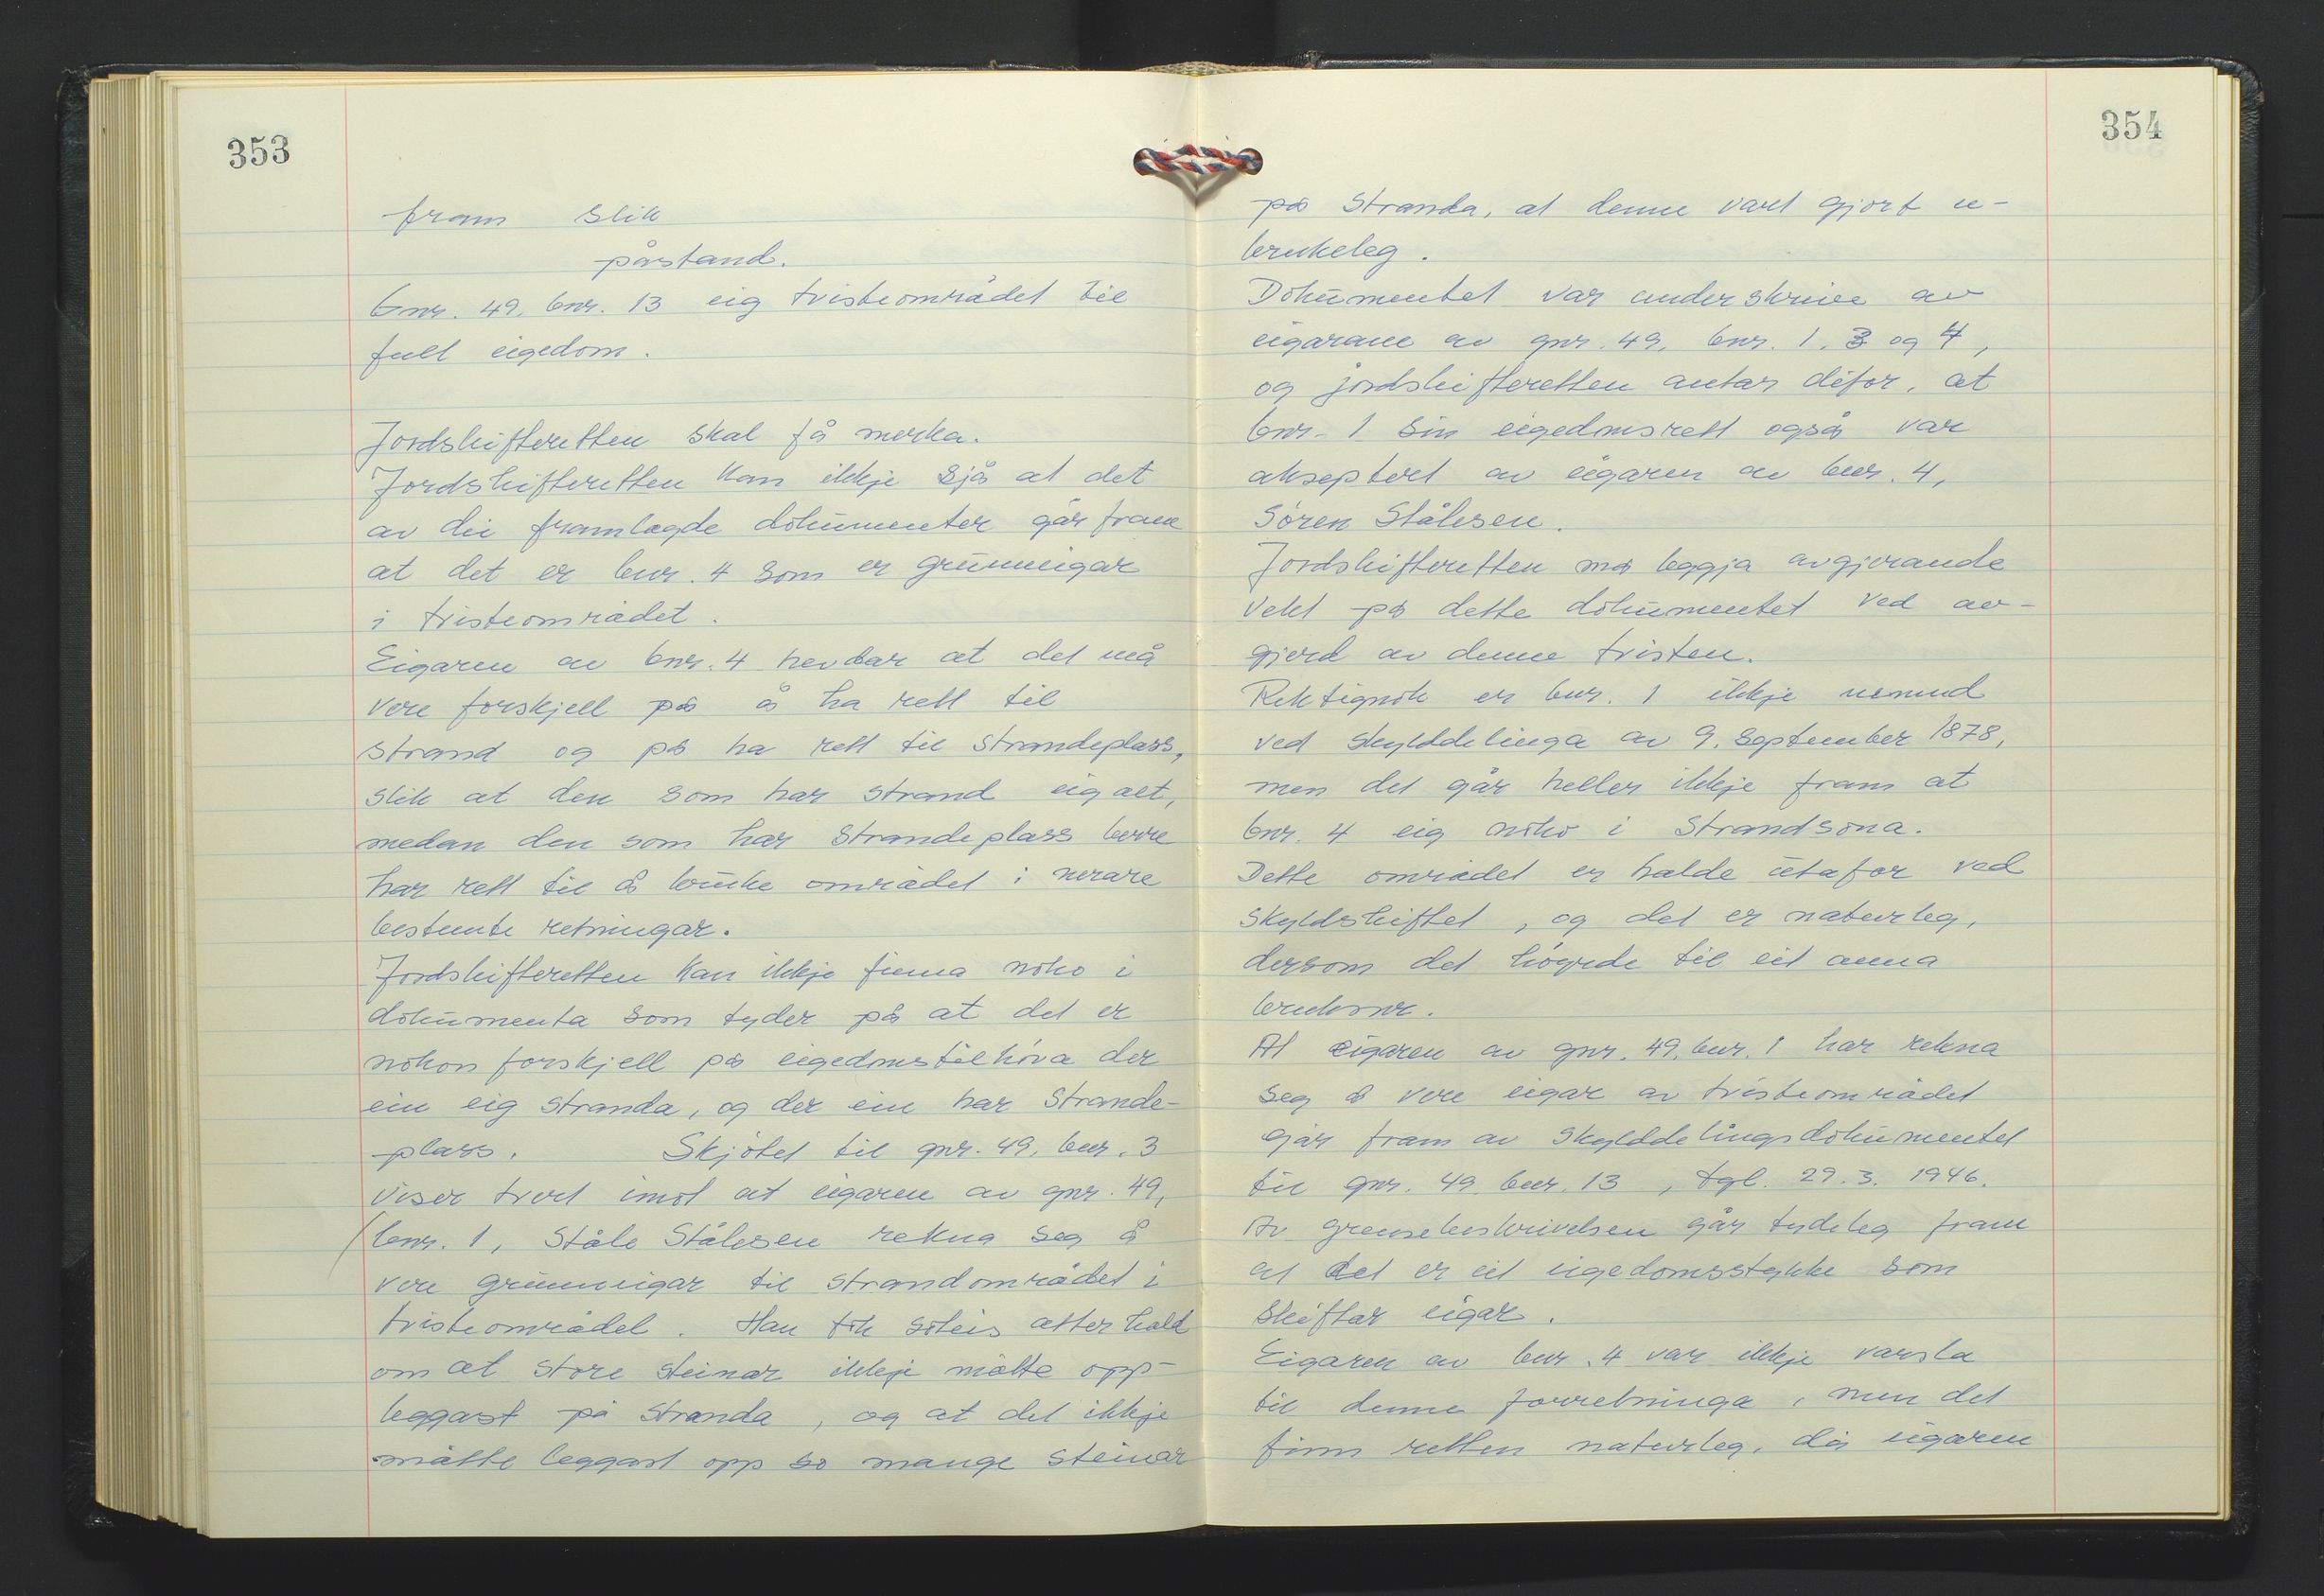 353
fram slik
påstand.
Gnr. 49, bnr. 13 eig tvisteområdet til
full eigedom.
Jordskifteretten skal få merka.
Jordskifteretten kan ikkje sjå at det
av dei framlagde dokumenter går fram
at det er bnr. 4 som er grunneigar
i tvisteområdet.
Eigaren av bnr. 4 hevdar at det må
vere forskjell på å ha rett til
strand og på ha rett til strandeplass,
slik at den som har strand eig alt,
medan den som har strandeplass berre
har rett til å bruke området i nerare
bestemte retningar.
Jordskifteretten kan ikkje finna noko i
dokumenta som tyder på at det er
nokon forskjell på eigedomstilhöva der
ein eig stranda, og der ein har strande-
plass. Skjötet til gnr. 49, bnr. 3
viser tvert imot at eigaren av gnr. 49,
bnr. 1, Ståle Stålesen rekna seg å
vere grunneigar til strandområdet i
tvisteområdet. Han tok soleis atterhald
om at store steinar ikkje måtte opp-
leggast på stranda, og at det ikkje
måtte leggast opp so mange steinar
354
på stranda, at denne vart gjort u-
brukeleg.
Dokumentet var underskrive av
eigarane av gnr. 49, bnr. 1, 3 og 4,
og jordskifteretten antar difor, at
bnr. 1 sin eigedomsrett også var
akseptert av eigaren av bnr. 4,
Sören Stålesen.
Jordskifteretten må leggja avgjerande
vekt på dette dokumentet ved av-
gjerd av denne tvisten.
Rektignok er bnr. 1 ikkje nemnd
ved skylddelinga av 9. september 1878,
men det går heller ikkje fram at
bnr. 4 eig noko i strandsona.
Dette området er halde utafor ved
skyldskiftet, og det er naturleg,
dersom det höyrde til eit anna
bruksnr.
At eigaren av gnr. 49, bnr. 1 har rekna
seg å vere eigar av tvisteområdet
går fram av skylddelingsdokumentet
til gnr. 49 bnr. 13, tgl. 29.3. 1946.
Av grensebeskrivelsen går tydeleg fram
at det er eit eigedomsstykke som
skiftar eigar.
Eigaren av bnr. 4 var ikkje varsla
til denne forretninga, men det
finn retten naturleg, då eigaren